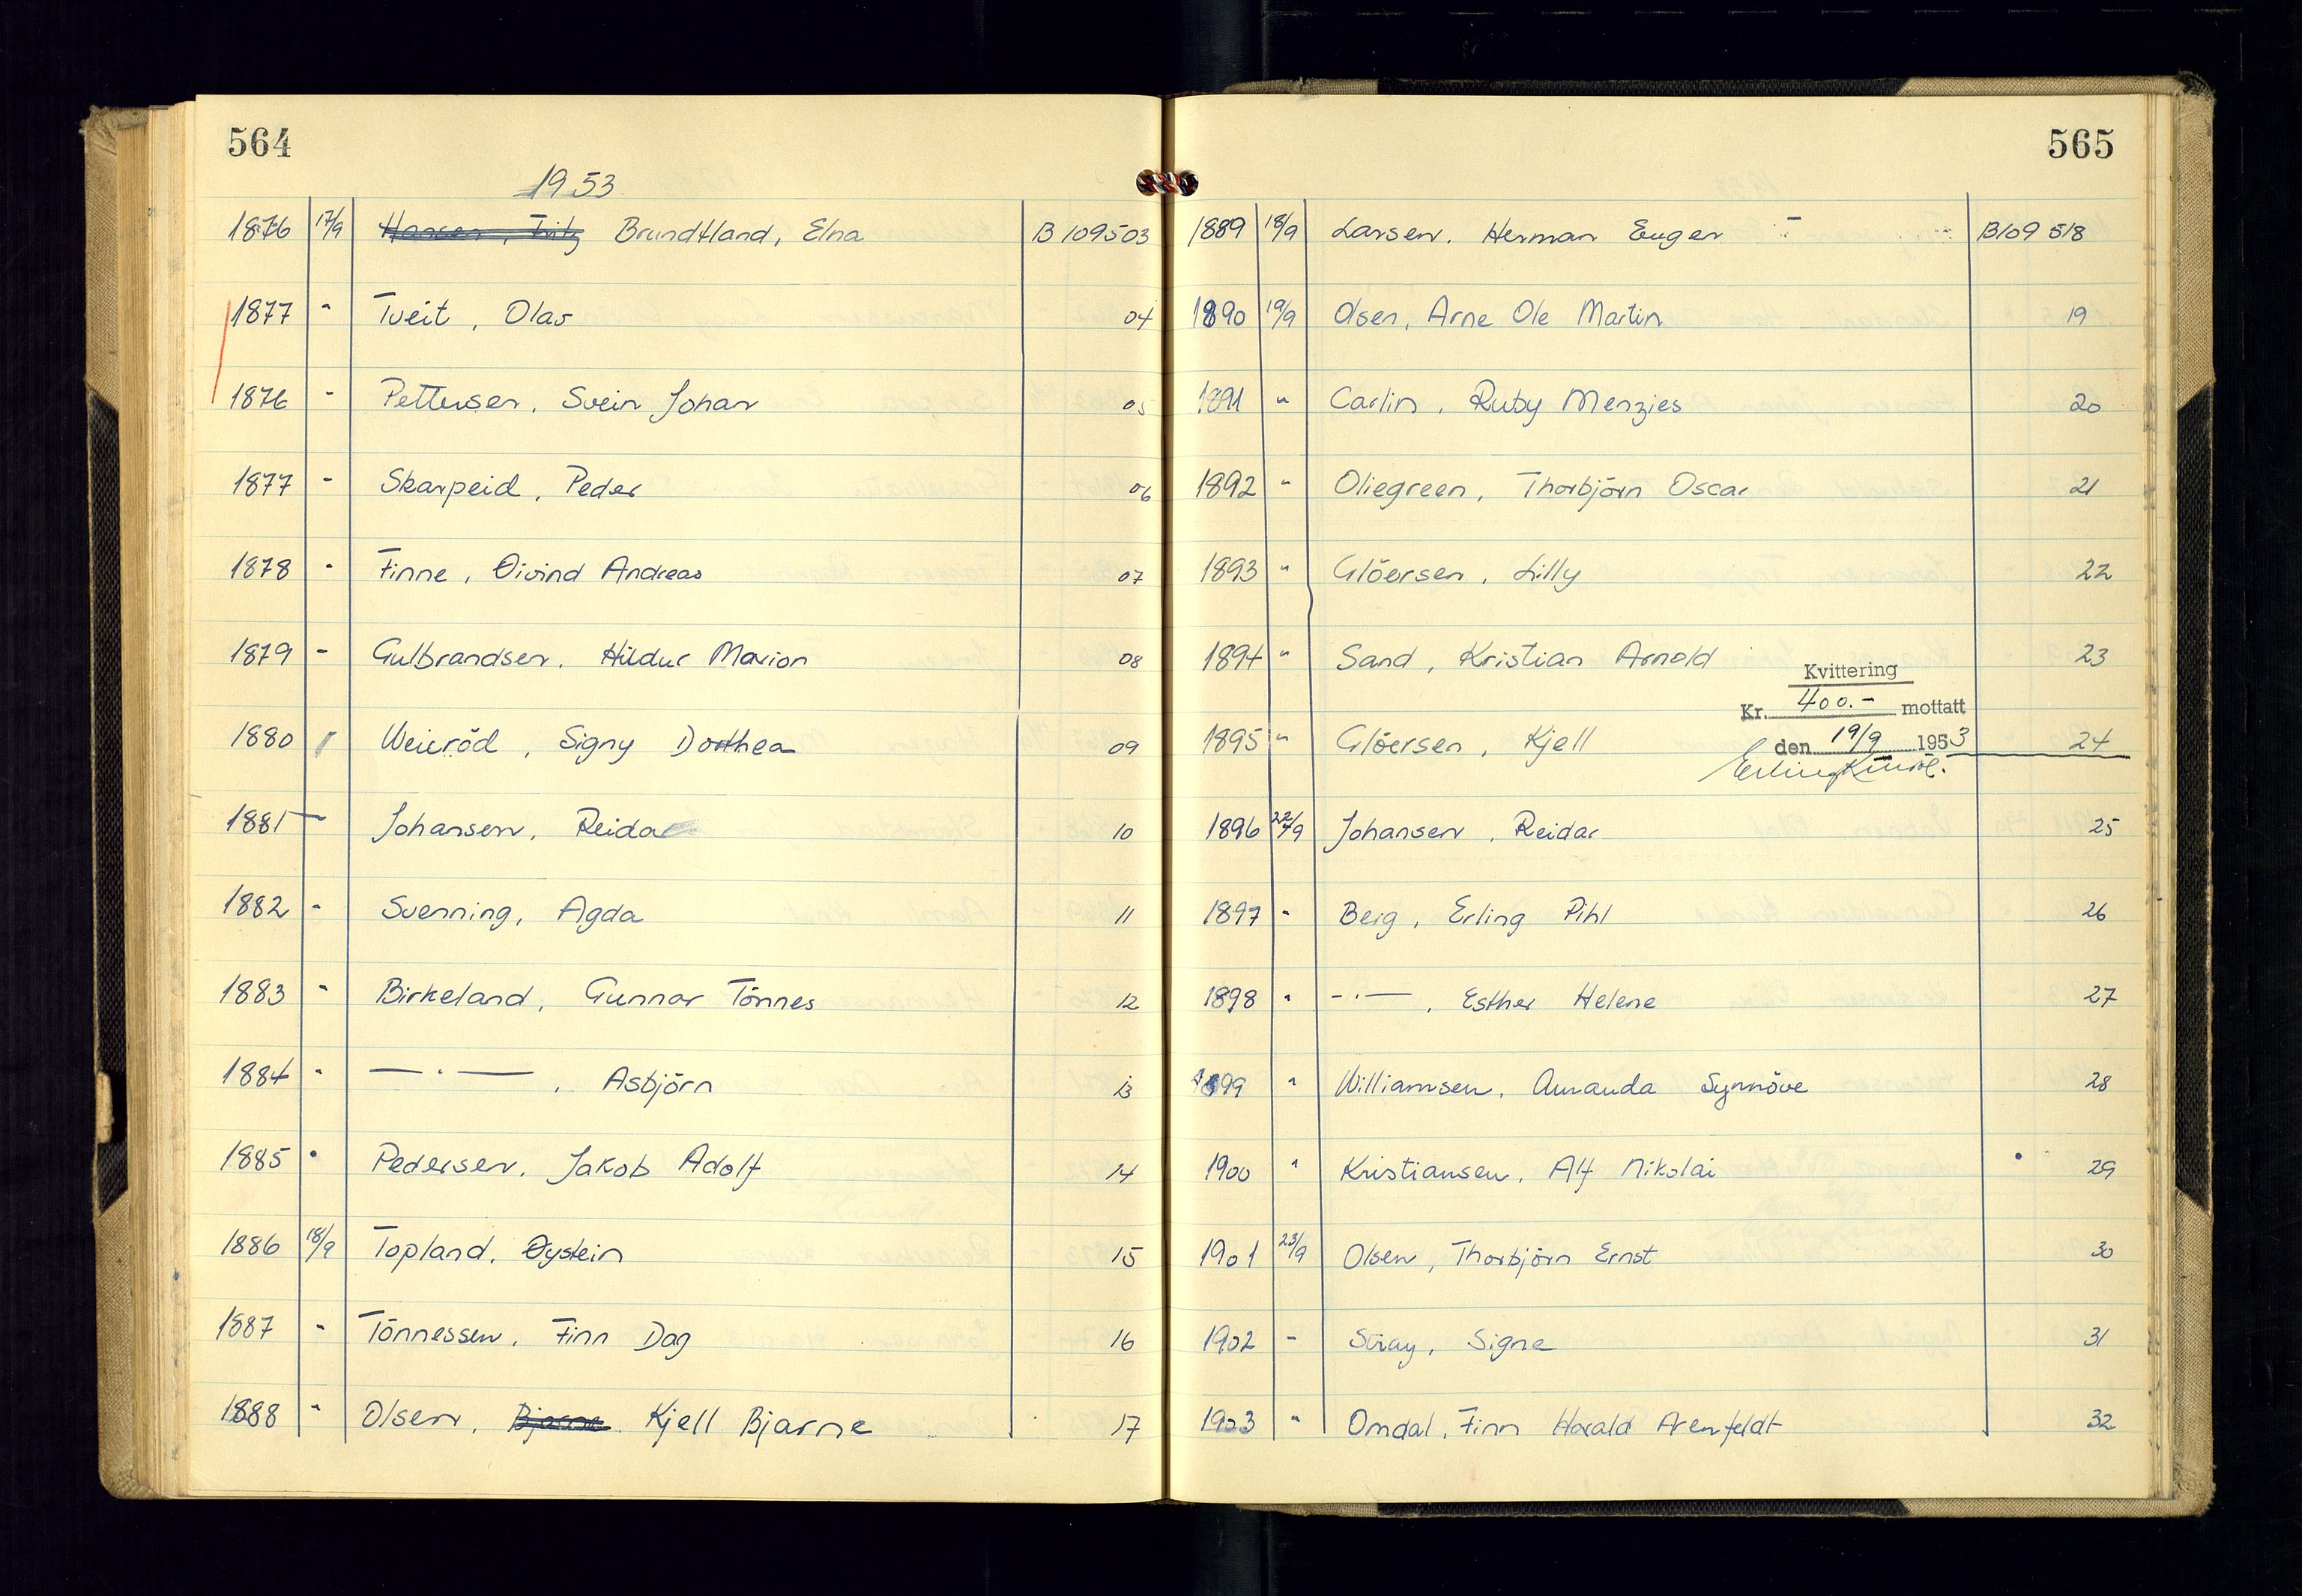 564
1953
1876 17/9 Hansen, Fritz Brundtland, Elna B 109503
1877 - Tveit, Olav 04
1876 - Pettersen, Svein Johan 05
1877 - Skarpeid, Peder 06
1878 - Finne, Øivind Andreas 07
1879 - Gulbrandsen, Hildur Marion 08
1880 Weieröd, Signy Dorthea 09
1881 - Johansen, Reidar 10
1882 - Svenning, Agda 11
1883 - Birkeland, Gunnar Tönnes 12
1884 - —·—, Asbjörn 13
1885 · Pedersen, Jakob Adolf 14
1886 18/9 Topland, Øystein 15
1887 - Tönnessen, Finn Dag 16
1888 " Olsen, Bjarne Kjell Bjarne 17
565
1889 18/9 Larsen, Herman Eugen B109 518
1890 19/9 Olsen, Arne Ole Martin 19
1891 " Carlin, Ruby Menzies 20
1892 " Oliegreen, Thorbjörn Oscar 21
1893 " Glöersen, Lilly 22
1894 " Sand, Kristian Arnold 23
Kvittering
Kr. 400.- mottatt
1895 " Glöersen, Kjell den 19/9 1953 24
1896 22/9 Johansen, Reidar 25
1897 - Berg, Erling Pihl 26
1898 " -·—, Esther Helene 27
1899 " Williamsen, Amanda Synnöve 28
1900 " Kristiansen, Alf Nikolai 29
1901 23/9 Olsen, Thorbjörn Ernst 30
1902 - Stray, Signe 31
1903 " Omdal, Finn Harald Arenfeldt 32